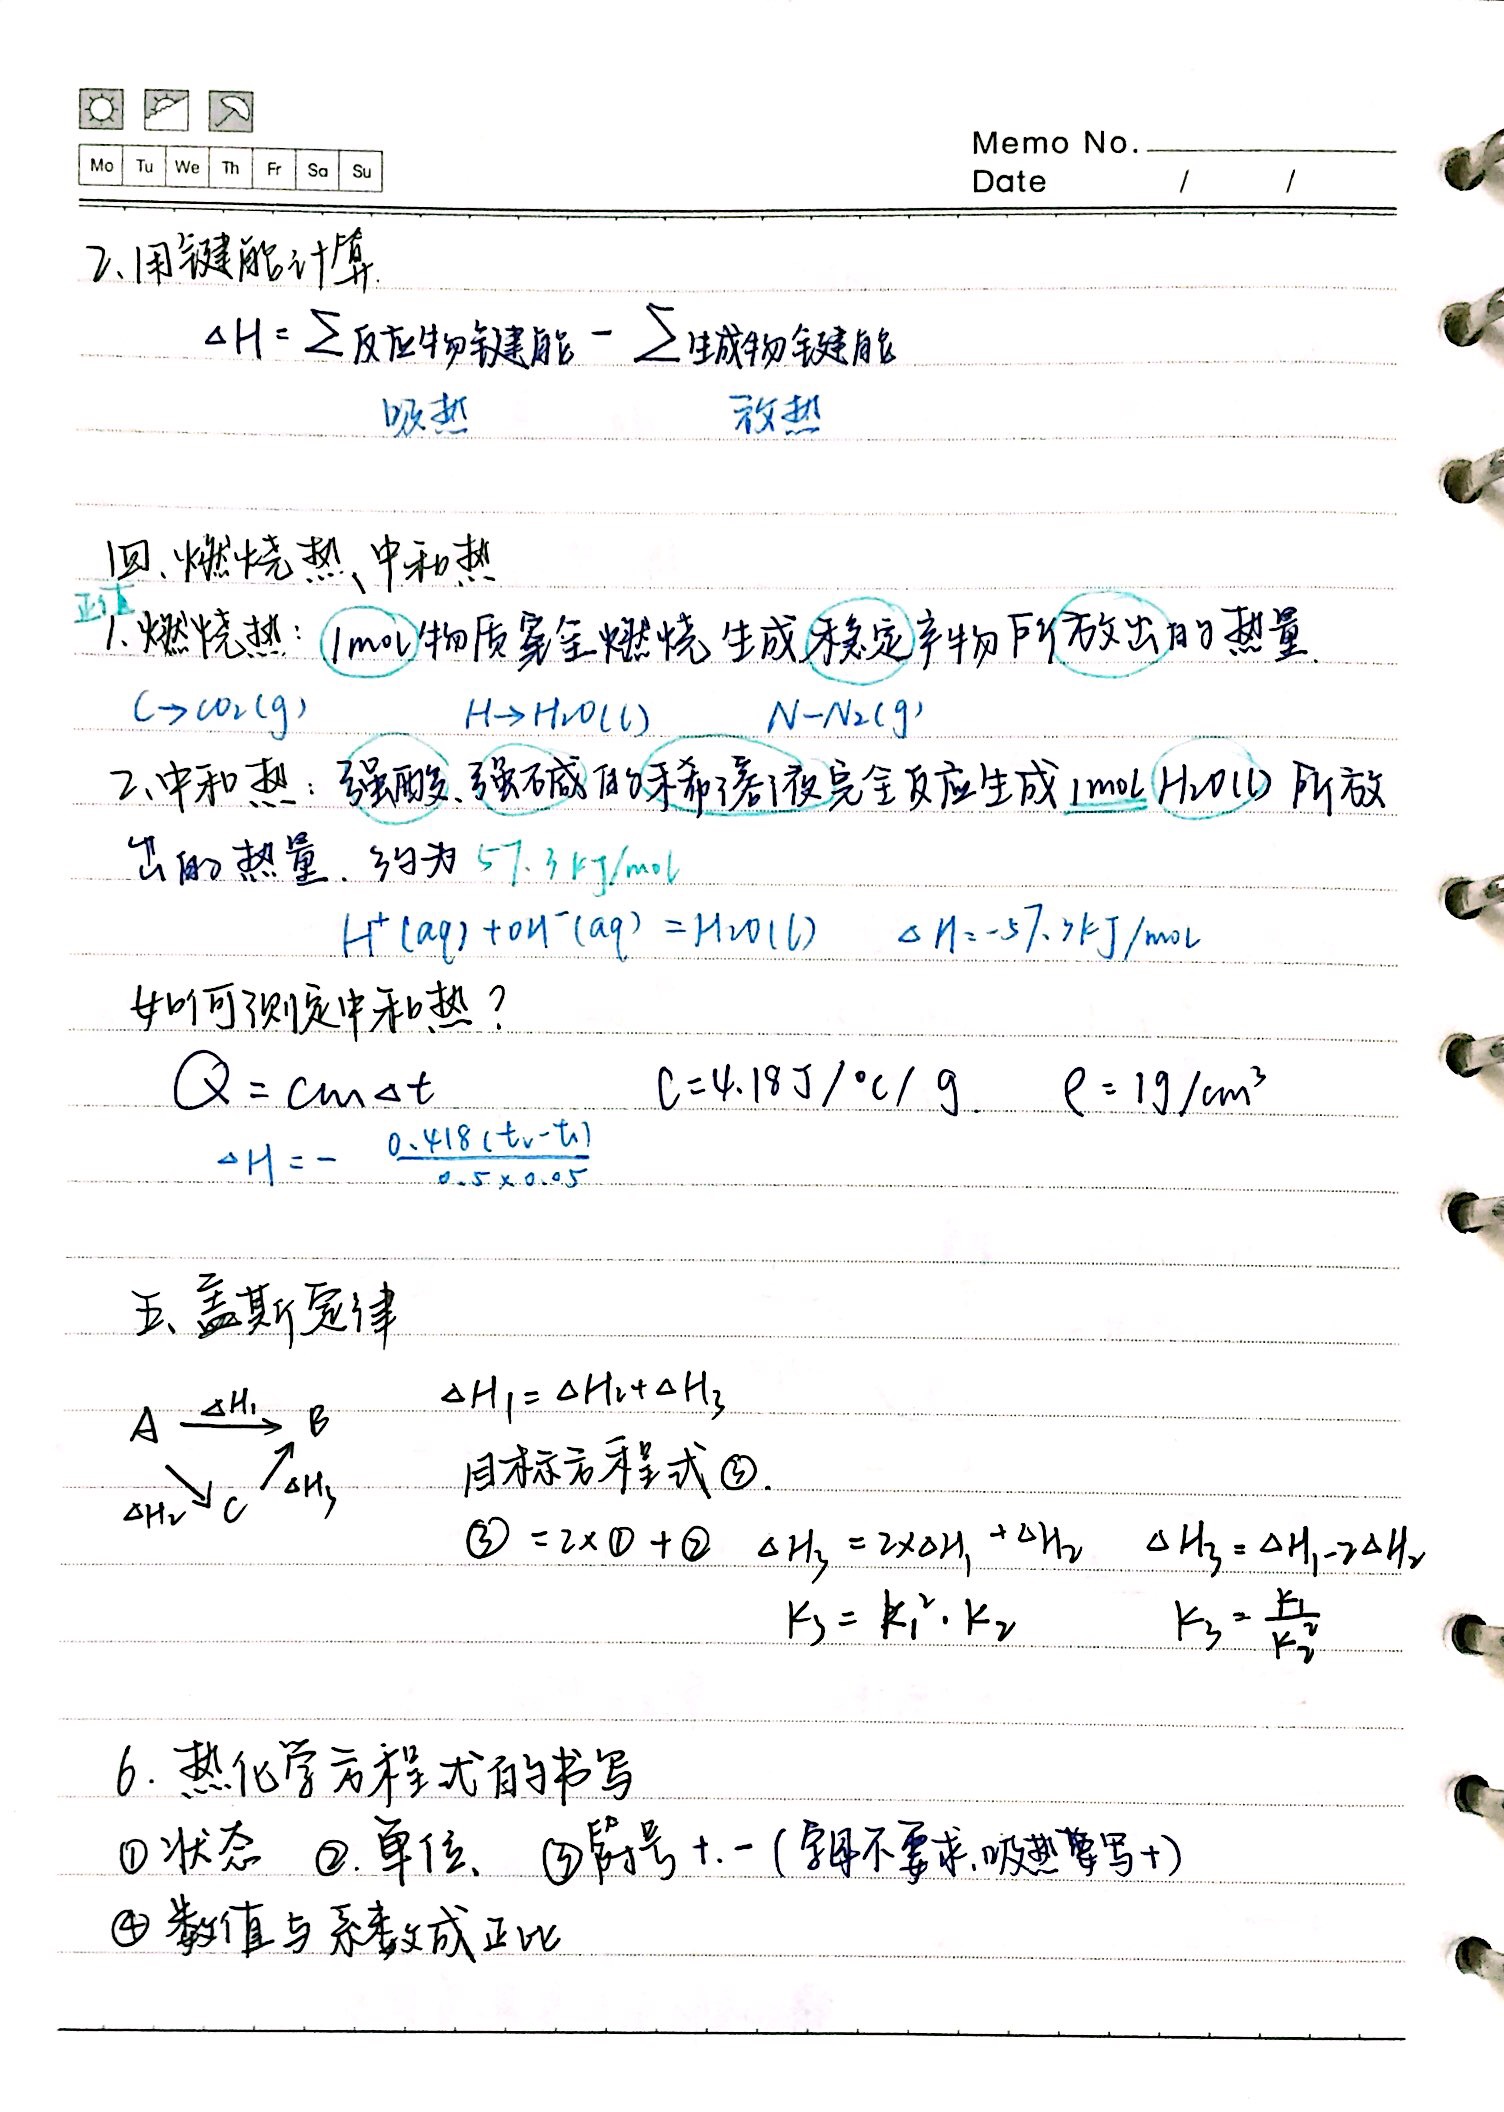 Memo No.
Mo Tu We Th Fr Sa Su
Date / /
2、用键能计算.
△H = ∑反应物键能 - ∑生成物键能
吸热 放热
四、燃烧热、中和热
正值
1.燃烧热: 1mol物质完全燃烧生成稳定产物所放出的热量.
C→CO₂(g) H→H₂O(l) N-N₂(g)
2、中和热: 强酸、强碱的稀溶液完全反应生成1mol H₂O(l) 所放
出的热量. 约为 57.3kJ/mol
H⁺(aq)+OH⁻(aq)=H₂O(l) △H=-57.3kJ/mol
如何测定中和热?
Q = cm△t C=4.18J/°C/g. ρ=1g/cm³
△H = - 0.418(t₂-t₁) / 0.5×0.05
五、盖斯定律
A △H₁→ B △H₁=△H₂+△H₃
△H₂ C △H₃ 目标方程式③.
③=2×①+② △H₃=2×△H₁+△H₂ △H₃=△H₁-2△H₂
K₃=K₁²·K₂ K₃=K₁/K₂²
6. 热化学方程式的书写
①状态 ②.单位、 ③符号+.-(字母不要求,吸热要写+)
④数值与系数成正比